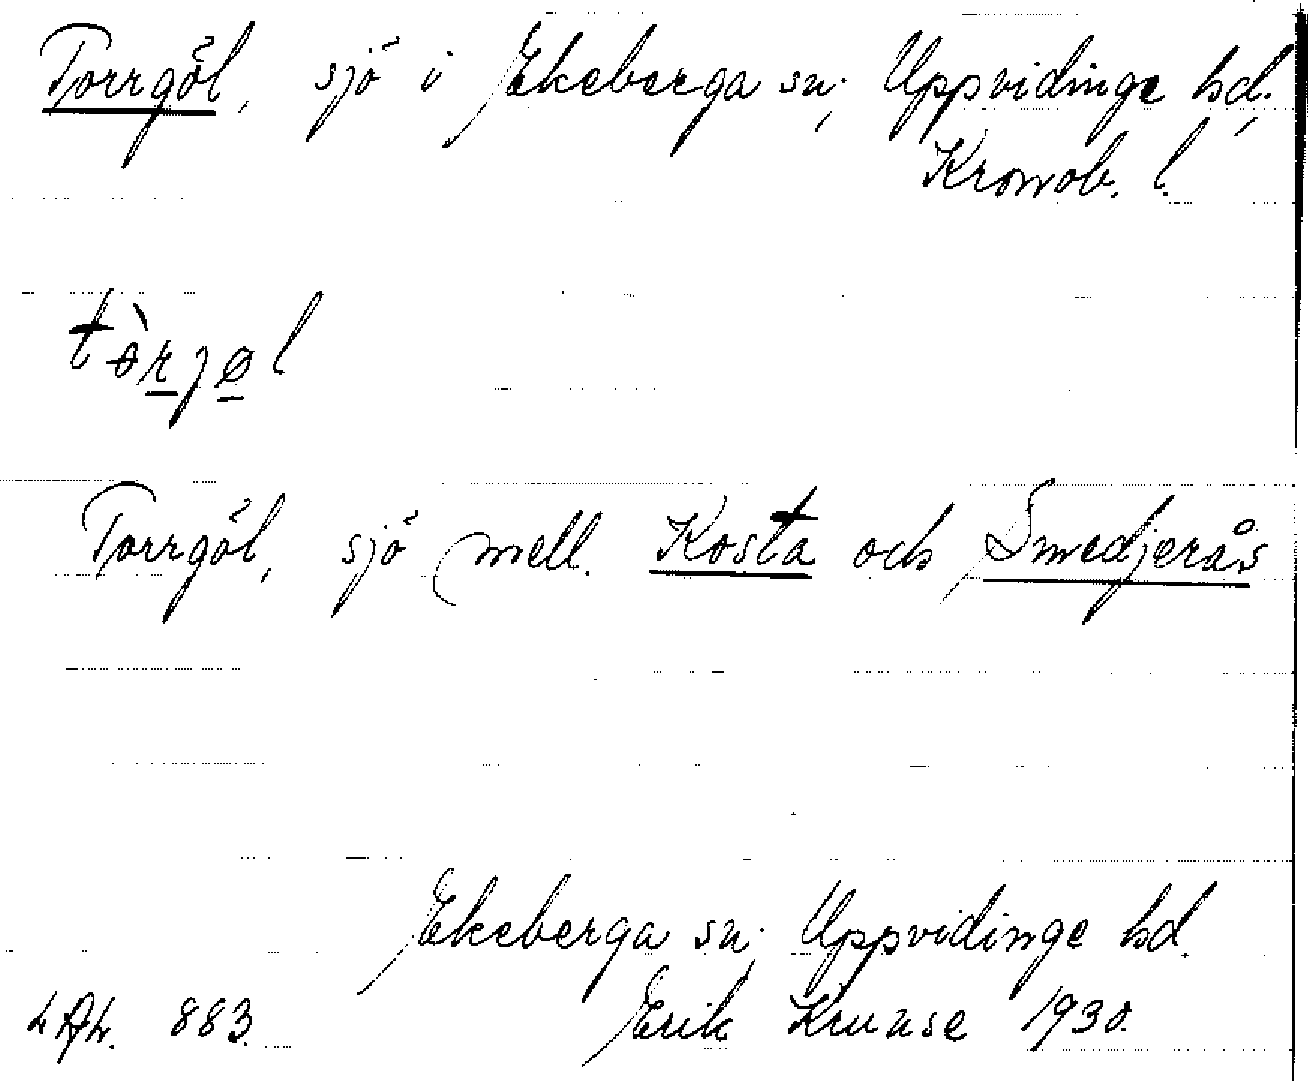 Torrgöl, sjö i Ekeberga sn; Uppvidinge hd,
Kronob. l.
tòrjøl
Torrgöl, sjö mell. Kosta och Smedjerås
Ekeberga sn; Uppvidinge hd.
LAL. 883. Erik Kruuse 1930.